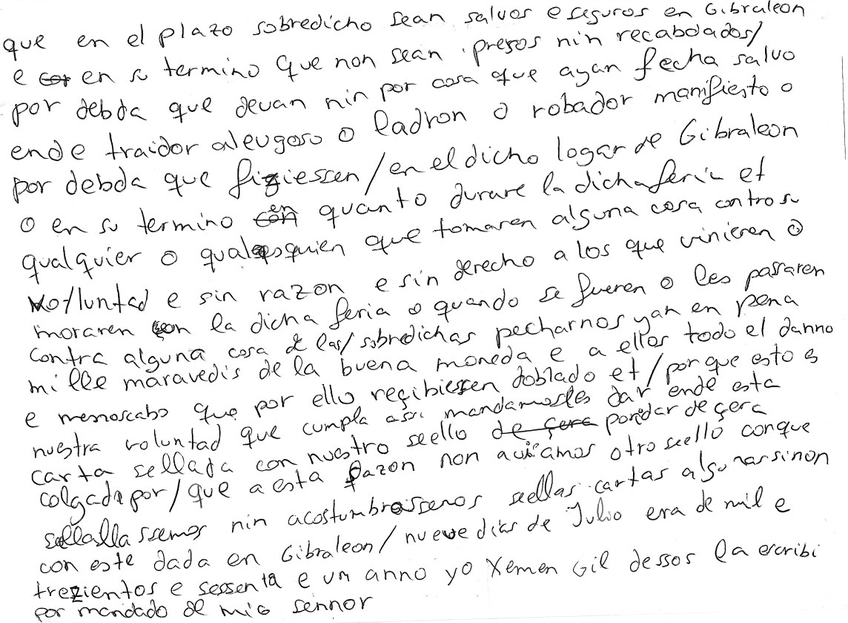 que en el plazo sobredicho sean salvos e seguros en Gibraleon
e en su termino que non sean presos nin recabdados/
por debda que devan nin por cosa que ayan fecha salvo
ende traidor alevgoso o ladron o robador manifiesto o
por debda que fiziessen/en el dicho logar de Gibraleon
o en su termino en quanto durare la dicha feria et
qualquier o qualesquier que tomaren alguna cosa contra su
voluntad e sin razon e sin derecho a los que vinieren o
moraren en la dicha feria o quando se fueren o les pasaren
contra alguna cosa de las/sobredichas pecharnos yan en pena
mille maravedis de la buena moneda e a ellos todo el danno
e menoscabo que por ello reçibiessen doblado et/porque esto es
nuestra voluntad que cumpla assi mandamosles dar ende esta
carta sellada con nuestro seello de çera
colgada por/que a esta sazon non aviamos otro seello con que
sellassemos nin acostumbrassemos seellar cartas algunas sinon
con este dada en Gibraleon/nueve dias de Julio era de mil e
trezientos e sessenta e un anno yo Xemen Gil dessos la escribi
por mandado de mio sennor